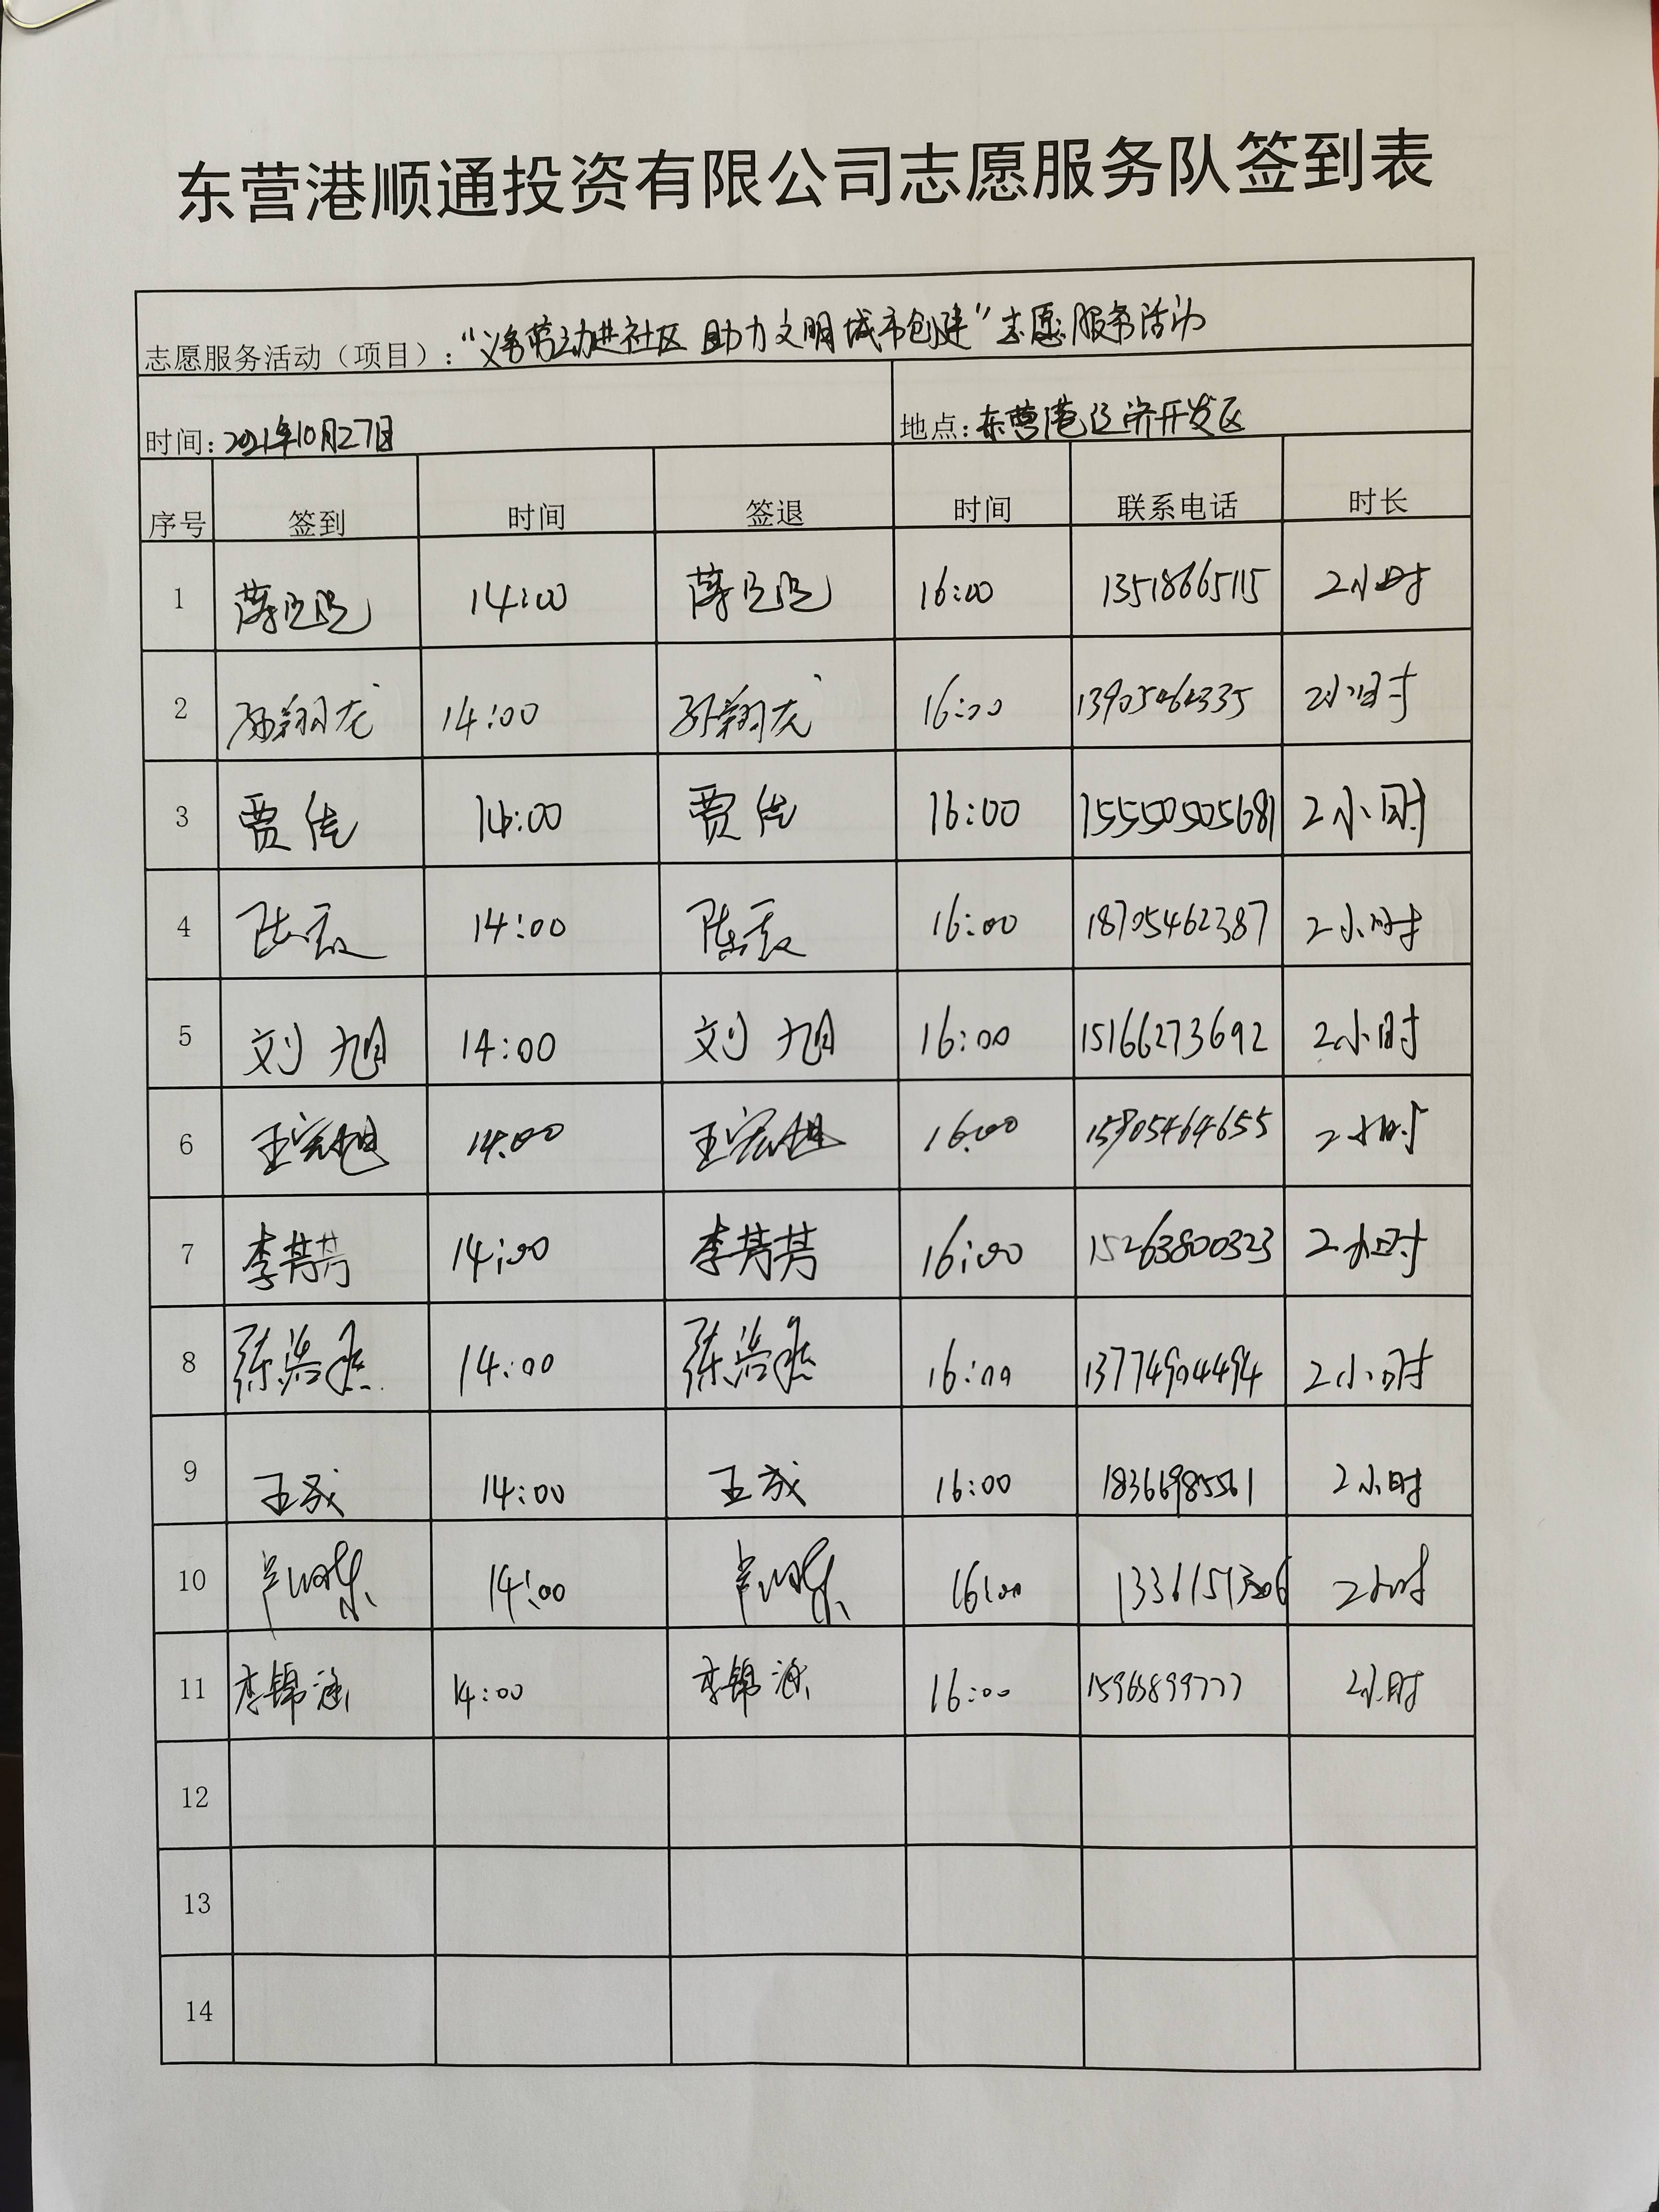 东营港顺通投资有限公司志愿服务队签到表
志愿服务活动（项目）："义务劳动进社区 助力文明城市创建"志愿服务活动
时间：2021年10月27日 地点：东营港经济开发区
序号 签到 时间 签退 时间 联系电话 时长
1 14:00 16:00 13518665115 2小时
2 孙翔龙 14:00 孙翔龙 16:00 2小时
3 贾佳 14:00 贾佳 16:00 15550505681 2小时
4 14:00 16:00 18705462387 2小时
5 刘旭 14:00 刘旭 16:00 15166273692 2小时
6 14:00 16:00 15905464655 2小时
7 李芳芳 14:00 李芳芳 16:00 15263800323 2小时
8 14:00 16:00 13774904494 2小时
9 王成 14:00 王成 16:00 18366985561 2小时
10 14:00 16:00 2小时
11 李锦涵 14:00 李锦涵 16:00 2小时
12
13
14